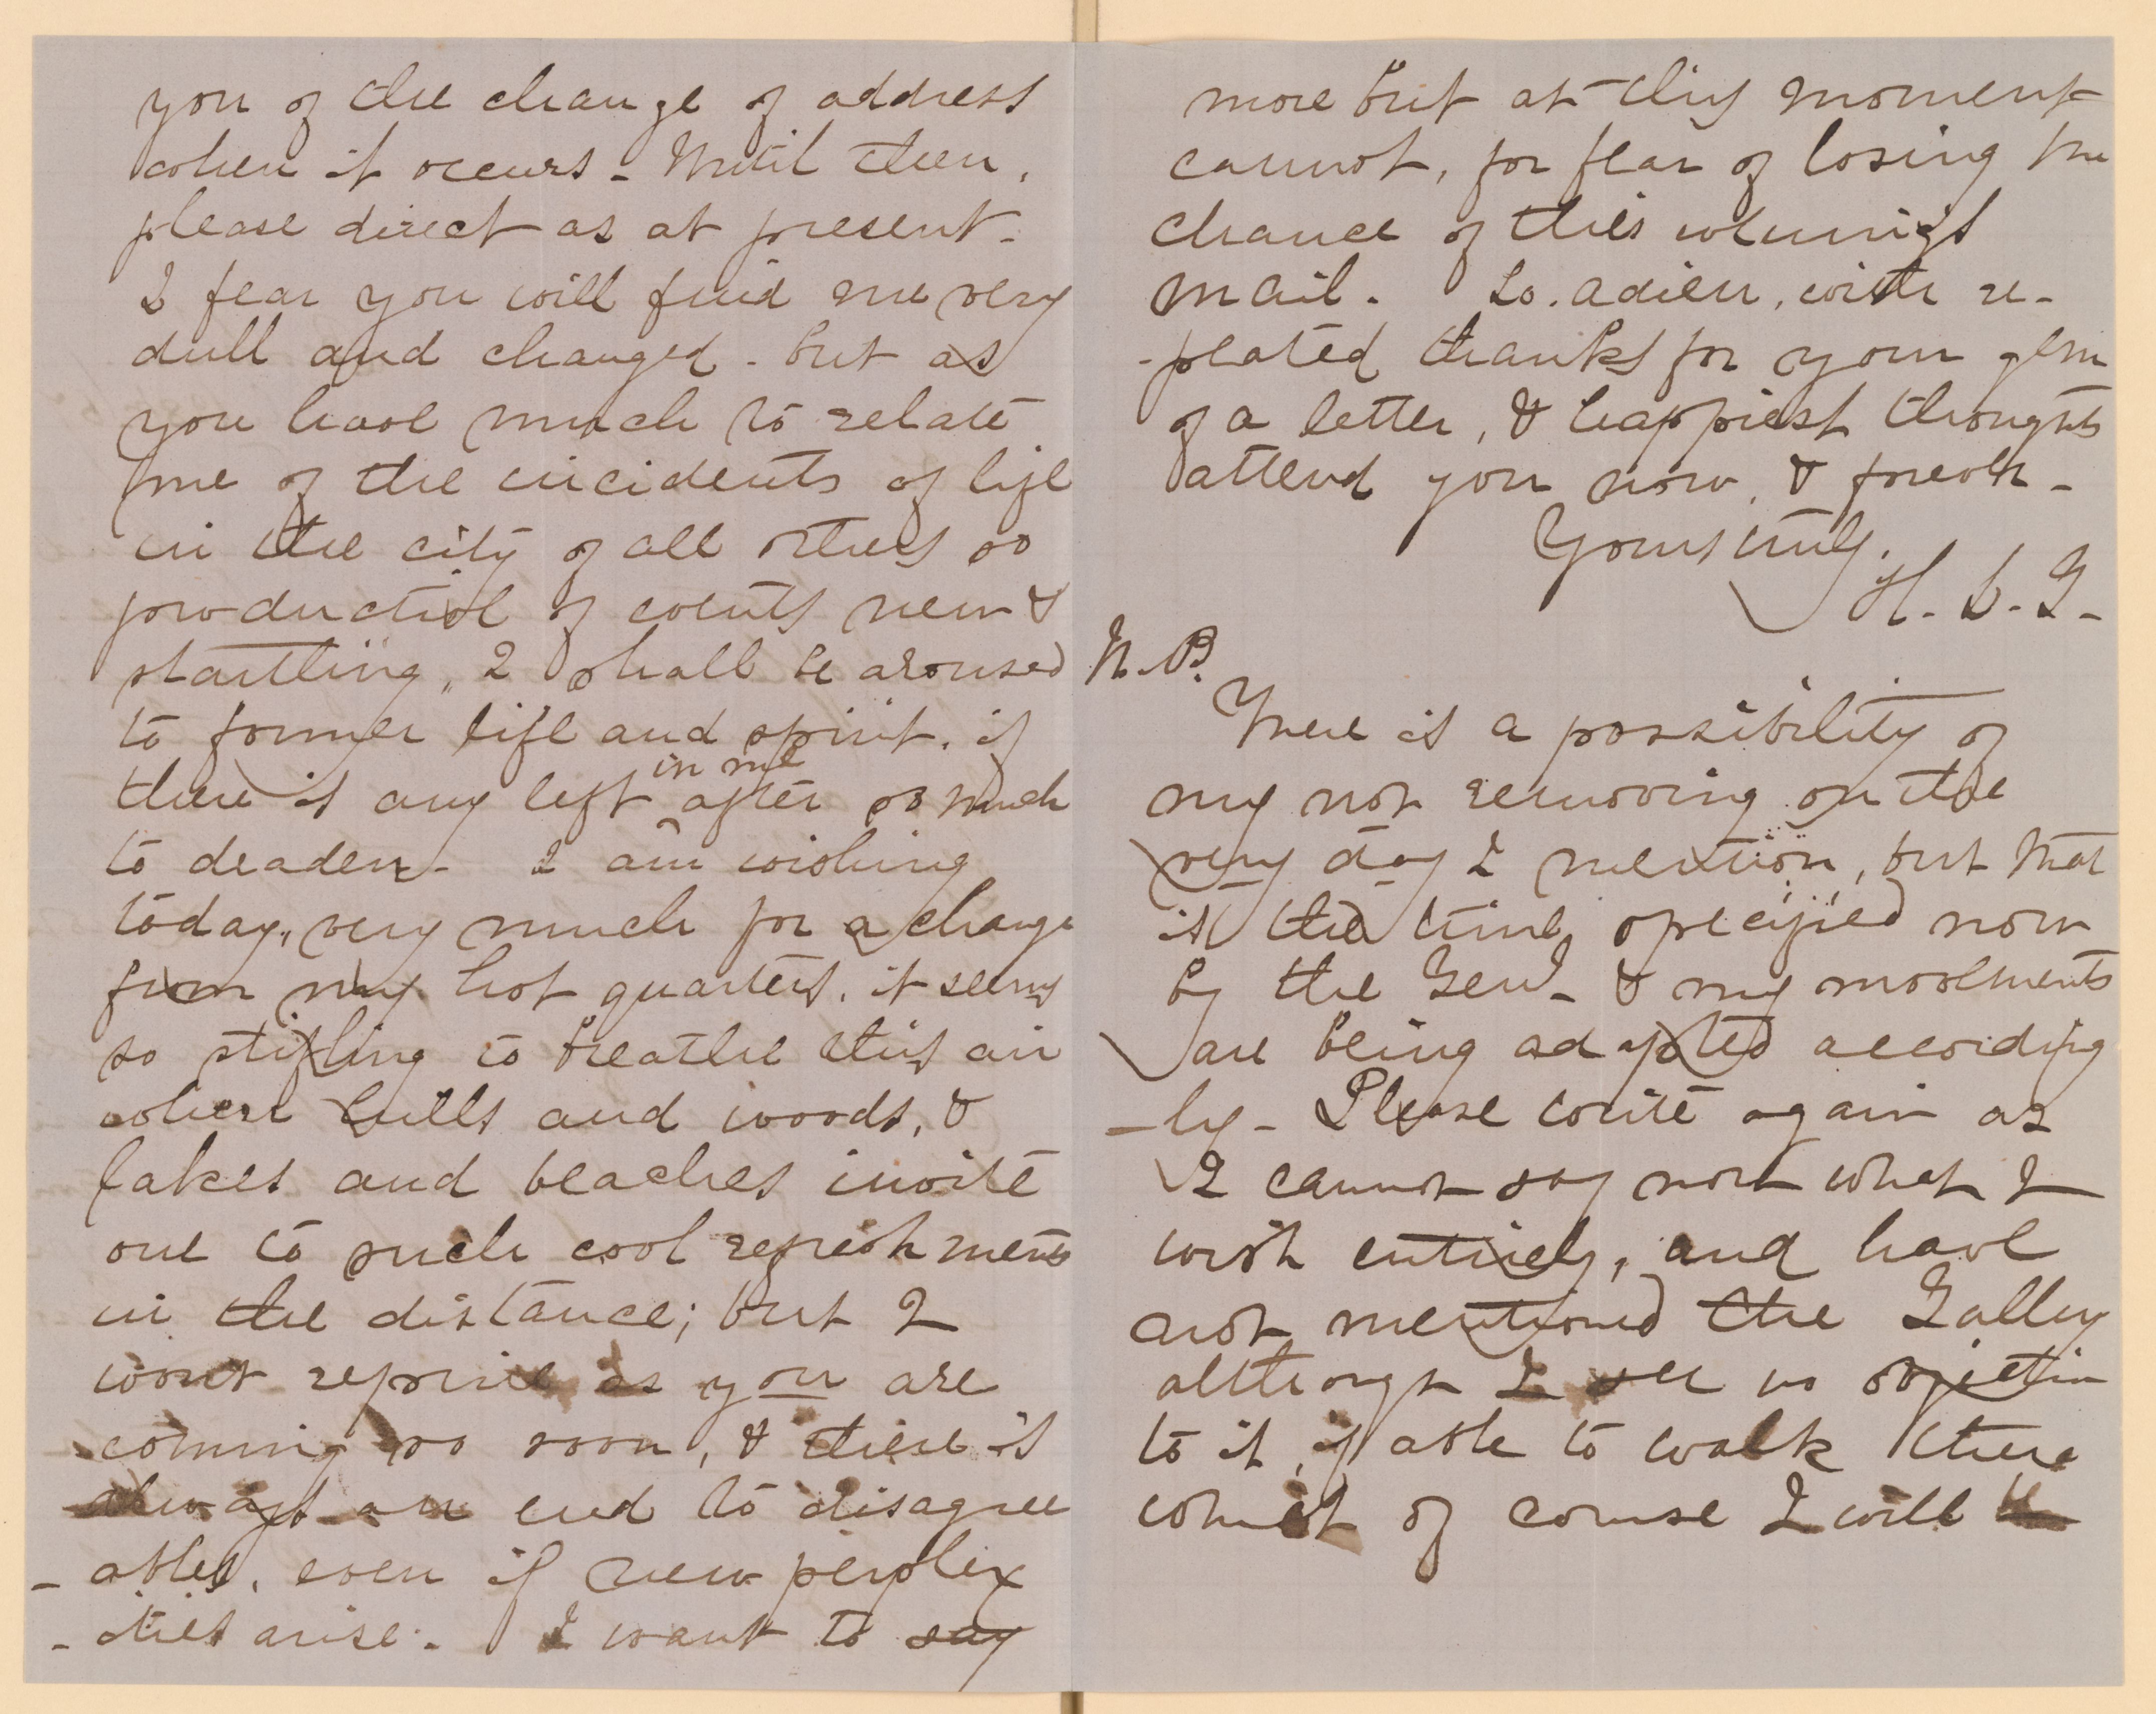 you of the change of address
when it occurs - Until then,
please direct as at present -
I fear you will find me very
dull and changed - but as
you have much to relate
me of the incidents of life
in the city of all others so
productive of events new &
startling, I shall be aroused
to former life and spirit, if
in me
there is any left after so much
to deaden - I am wishing
today, very much for a change
from my hot quarters, it seems
so stifling to breathe this air
when hills and woods, &
lakes and beaches invite
one to such cool refreshments
in the distance; but I
wont repine as you are
coming so soon, & there is
always an end to disagree
- ables, even if new perplex
- ities arise - I want to say
more but at this moment
cannot, for fear of losing the
chance of this evening's
mail. So, adieu, with re-
- peated thanks for your gem
of a letter, & happiest thoughts
attend you now, & forever -
Yours truly,
H. S. G -
N. B.
There is a possibility of
my not removing on the
very day I mention, but that
is the time specified now
by the Genl - & my movements
are being adapted according
- ly - Please write again as
I cannot say now what I
wish entirely, and have
not mentioned the Gallery
although I see no objection
to it, if able to walk there
which of course I will be